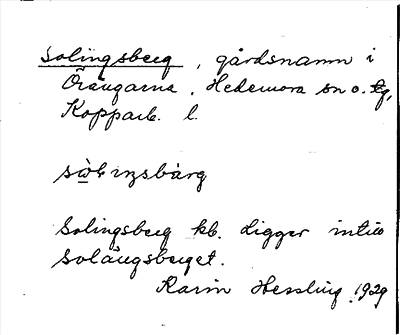 Solingsberg, gårdsnamn i
Öraugarna, Hedemora sn o. tg,
Kopparb. l.
Solingsberg kb. ligger intill
Solängsberget.
Karin Hessling 1929